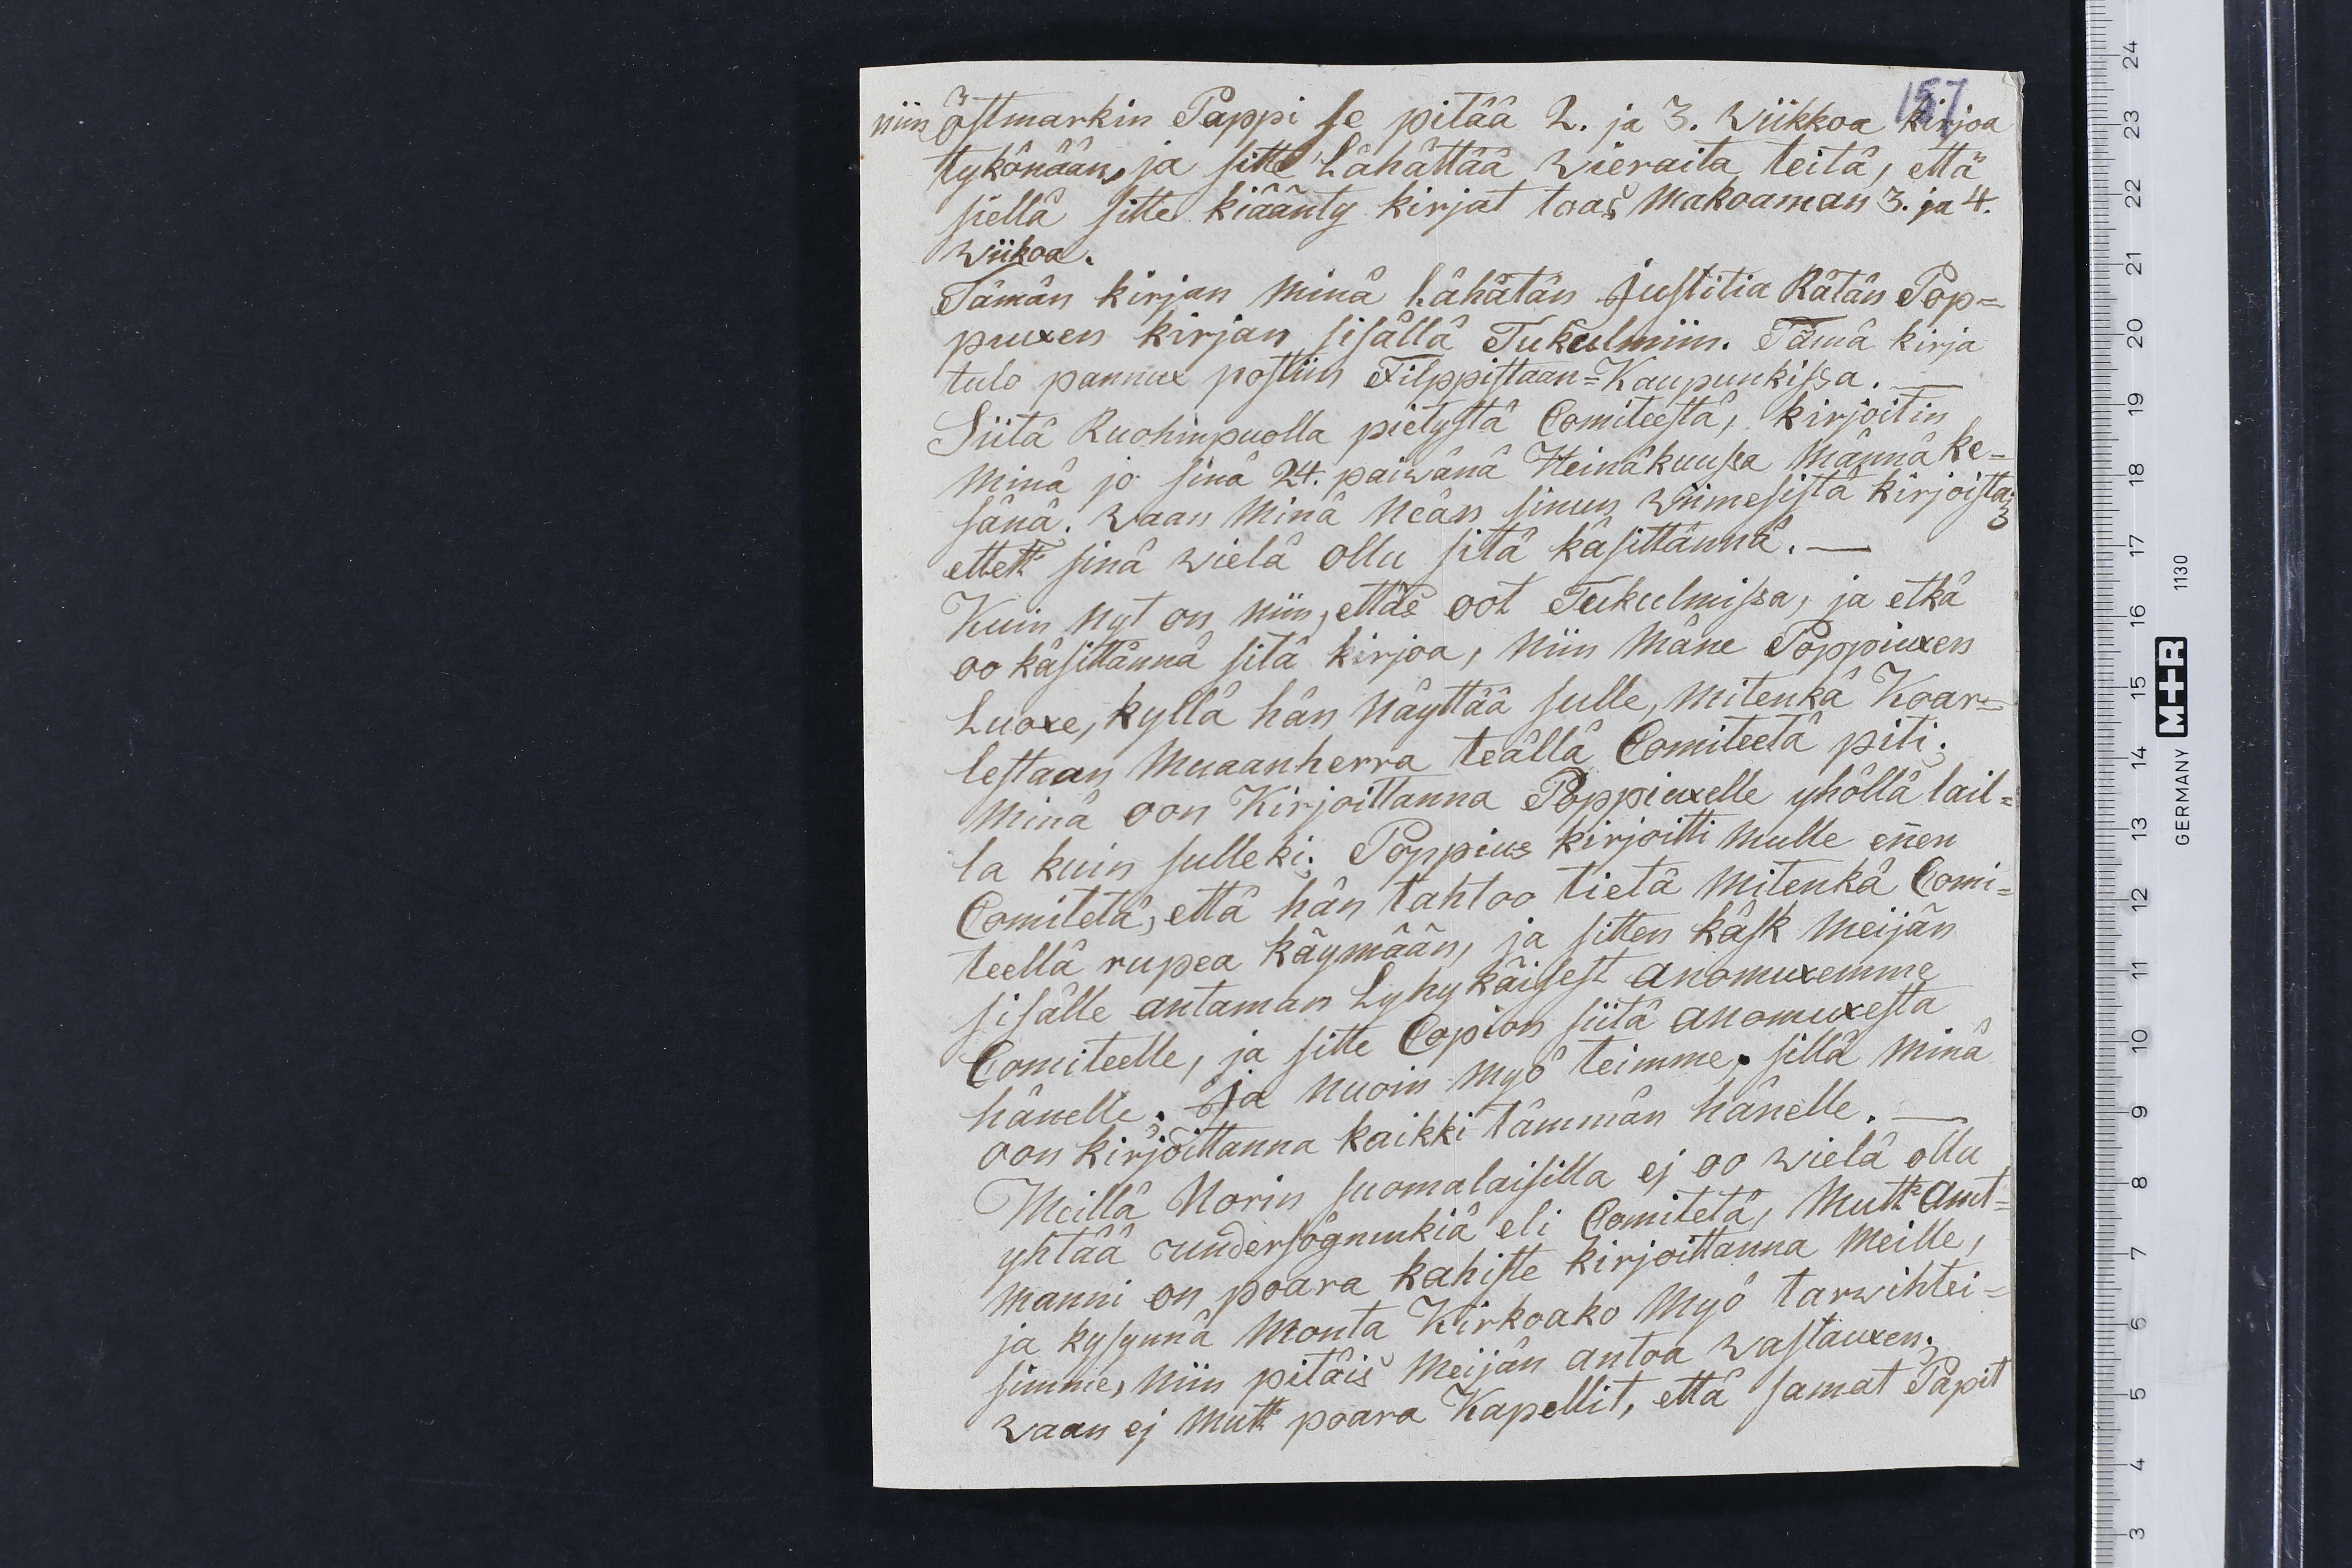 157
niin östmarkin Pappi se pitää 2. ja 3. wiikkoa kirjoa
tykönään, ja sitte Lähättää wieraita teitä, että
siellä sitte kiäänty kirjat toas makoaman 3. ja 4.
wiikoa.
Tämän kirjan minä Lähätän Justitia Rätän Pop=
piuxen kirjan sisällä Tukulmiin. Tämä kirja
tulo pannux postiin Filppistaan=Kaupunkissa. —
Siitä Ruohinpuolla pietystä Comiteestä, kirjoitin
minä jo sinä 24. paiwänä Heinäkuussa männä ke=
sänä. waan minä neän sinun wiimesistä kirjoista;
ettett sinä wielä ollu sitä käsittännä. —
Kuin nyt on niin, ettäs oot Tukulmissa, ja etkä
oo käsittännä sitä kirjoa, niin mäne Poppiuxen
Luoxe, kyllä hän näyttää sulle, mitenkä Koar=
lestaan muaanherra teällä Comiteetä piti;
minä oon Kirjoittanna Poppiuxelle yhöllä lail=
la kuin sulleki; Poppius kirjoitti mulle eñen
Comitetä, että hän tahtoo tietä mitenkä Comi=
teellä rupea käymään, ja sitten käsk meijän
sisälle antaman Lyhykäisest anomuxemme
Comiteelle, ja sitte Copion siitä anomuxesta
hänelle; Ja nuoin myö teimme, sillä minä
oon kirjoittanna kaikki tämmän hänelle. —
Meillä Norin suomalaisilla ej oo wielä ollu
yhtää undersögninkiä eli Comitetä, mutt Amt=
manni on poara kahiste kirjoittanna meille,
ja kysynnä monta Kirkoako myö tarwihtei=
simme, niin pitäis meijän antoa wastauxen;
waan ej mutt poara Kapellit, että samat Papit
GERMANY M+R 1130
24
23
22
21
20
19
18
17
16
15
14
13
12
11
10
9
8
7
6
5
4
3